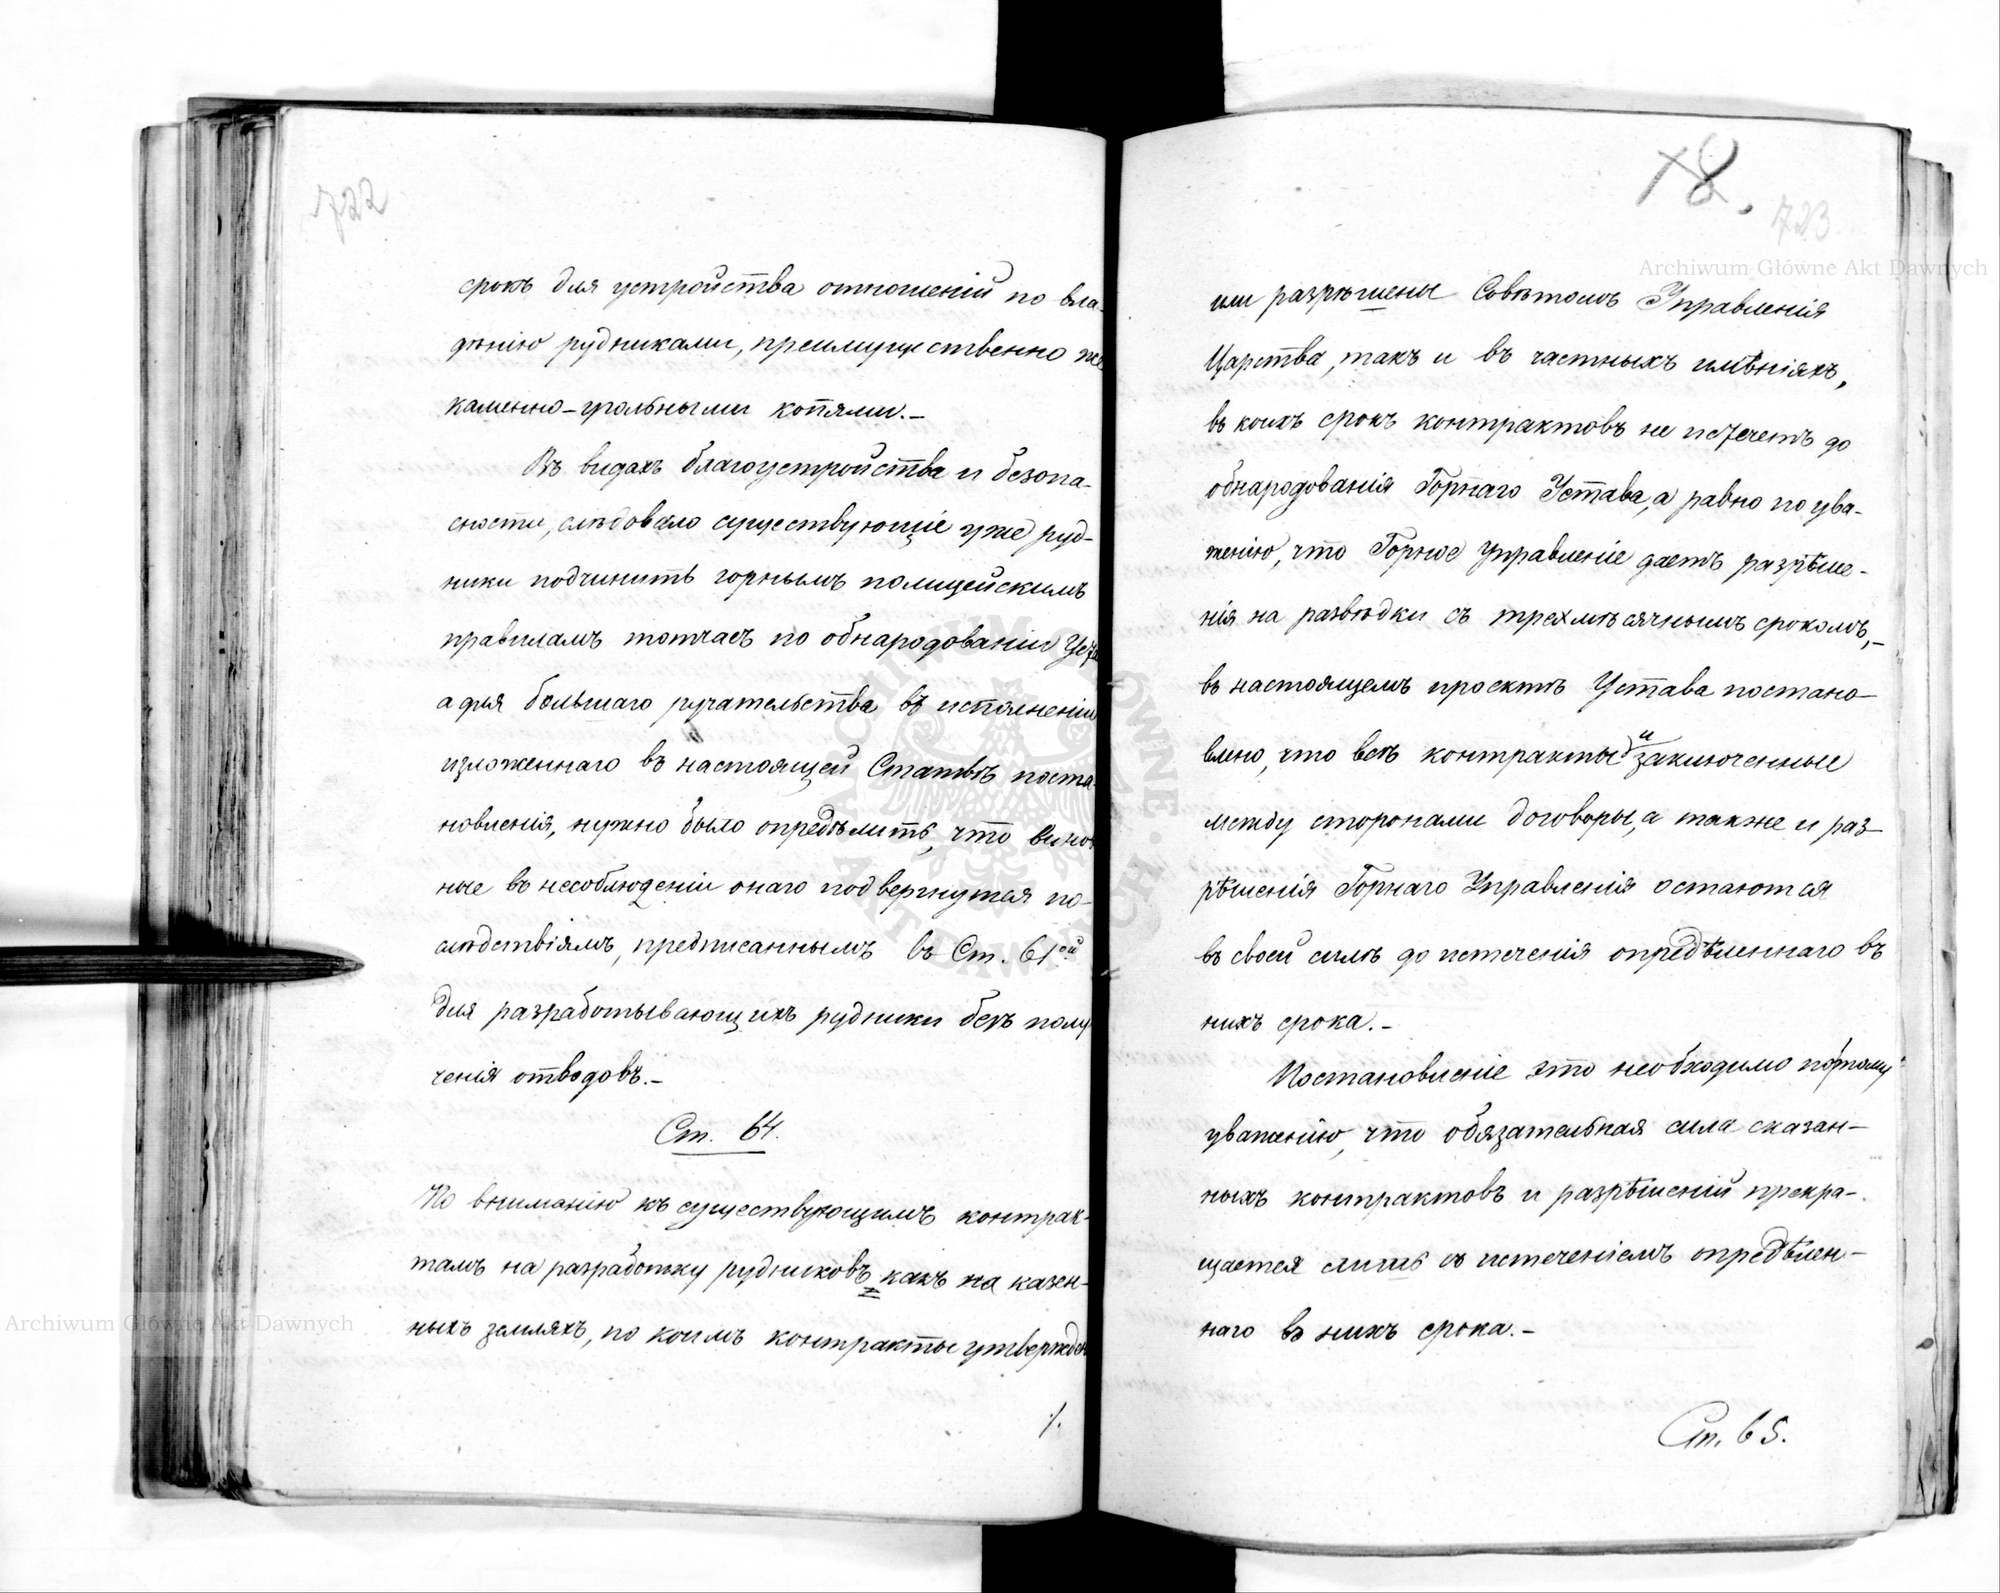 722
срокъ для устройства отношеній по вла-
дѣнію рудниками, преимущественно же
каменно-угольными копями.-
Въ видахъ благоустройства и безопа-
сности, слѣдовало существующіе уже руд-
ники подчинить горнымъ полицейскимъ
правиламъ тотчасъ по обнародованіи
а для большаго ручательства въ исполненіи
изложеннаго въ настоящей Статьѣ поста-
новленія, нужно было опредѣлить, что винов
ные въ несоблюденіи онаго подвергнутся по-
слѣдствіямъ, предписаннымъ въ Ст. 61ой
для разработывающихъ рудники безъ полу
ченія отводовъ.-
Ст. 64.
По вниманію къ существующимъ контрак-
тамъ на разработку рудниковъ какъ на казен-
ныхъ земляхъ, по коимъ контракты утвержден
./.
18.
723
или разрѣшены Совѣтомъ Управленія
Царства, такъ и въ частныхъ имѣніяхъ,
въ коихъ срокъ контрактовъ не истечетъ до
обнародованія Горнаго Устава, а равно по ува-
женію, что Горное Управленіе даетъ разрѣше-
нія на развѣдки съ трехмѣсячнымъ срокомъ,-
въ настоящемъ проектѣ Устава постано-
влено, что всѣ контракты и заключенные
между сторонами договоры, а также и раз-
рѣшенія Горнаго Управленія остаются
въ своей силѣ до истеченія опредѣленнаго въ
нихъ срока.-
Постановленіе это необходимо по тому
уваженію, что обязательная сила сказан-
ныхъ контрактовъ и разрѣшеній прекра-
щается лишь съ истеченіемъ опредѣлен-
наго въ нихъ срока.-
Ст. 65.
Archiwum Główne Akt Dawnych
Archiwum Główne Akt Dawnych